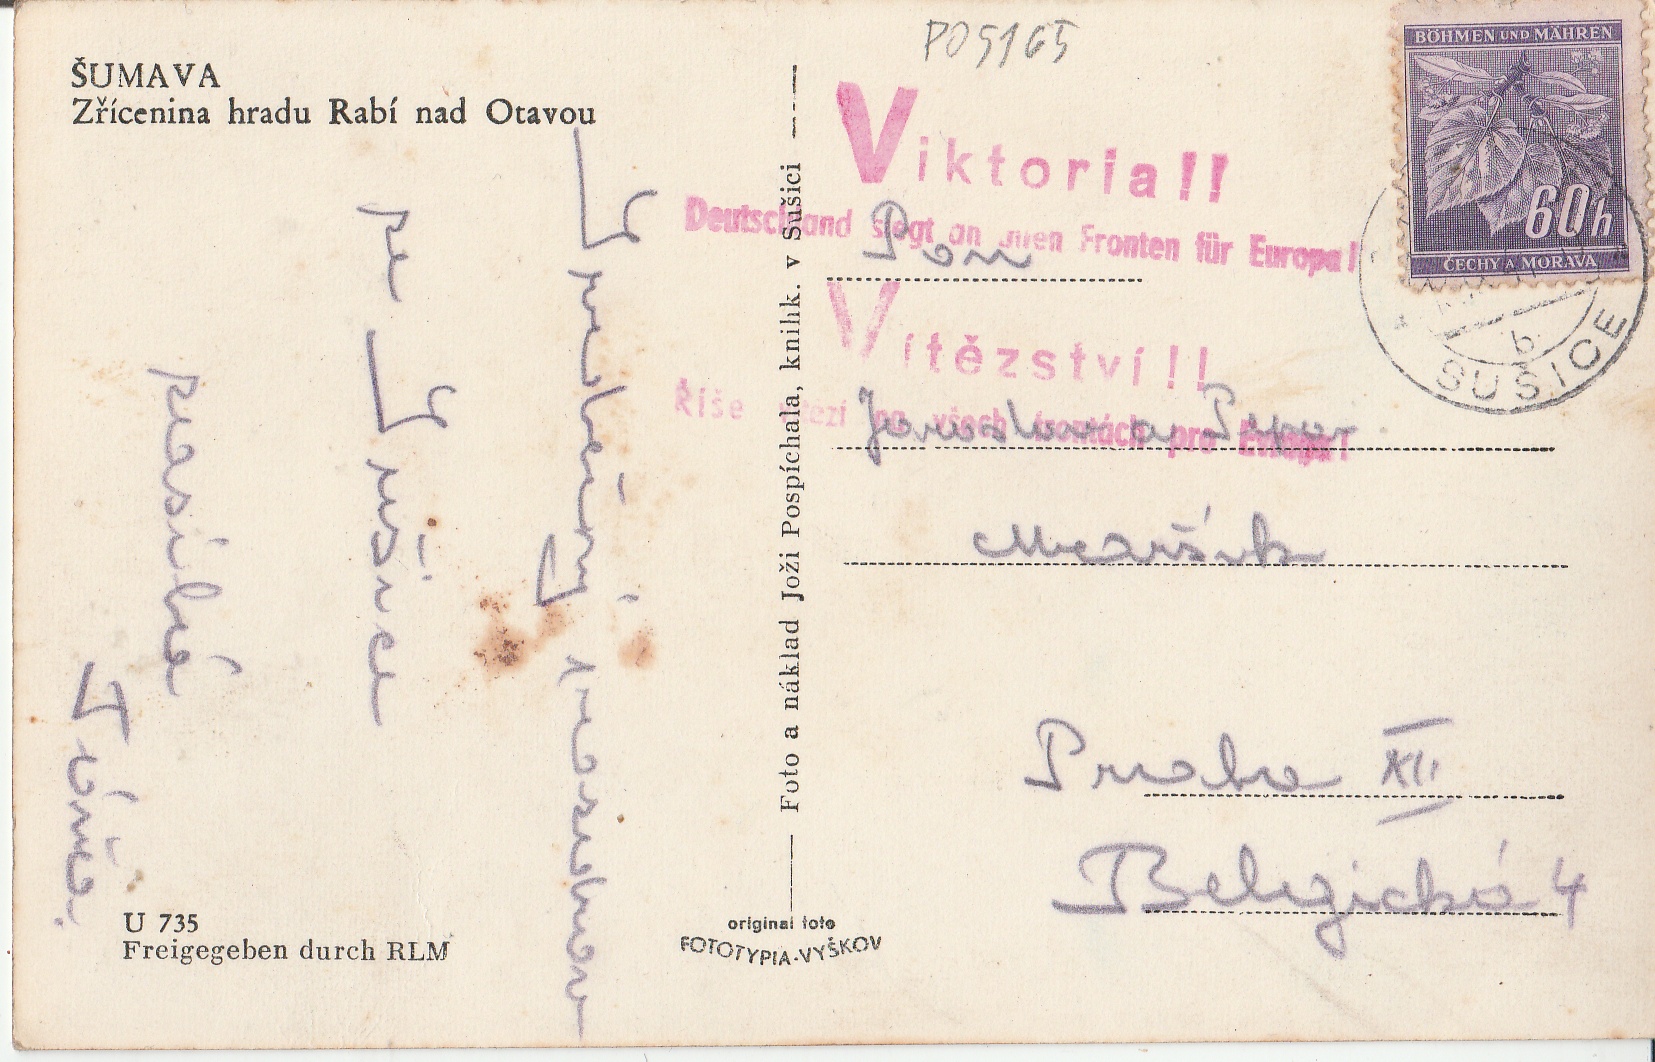 ŠUMAVA
Zřícenina hradu Rabí nad Otavou
Srdečný pozdrav
ze Sušice
posílá
Tonča.
U 735
Freigegeben durch RLM
Foto a náklad Joži Pospíchala, knihk. v Sušici
original foto
FOTOTYPIA-VYŠKOV
PO5165
Viktoria!!
Deutschland siegt an allen Fronten für Europa!
Vítězství!!
Říše vítězí na všech frontách pro Evropu!
BÖHMEN UND MÄHREN
60h
ČECHY A MORAVA
SUŠICE
b
Pan
Jaroslav
Praha XII
Belgická 4